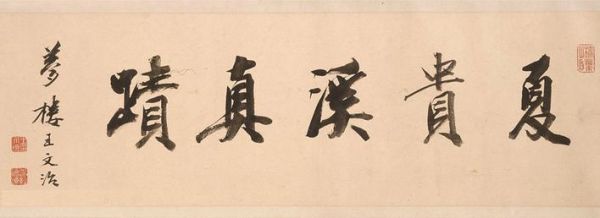 夏貴溪真蹟
夢樓王文治